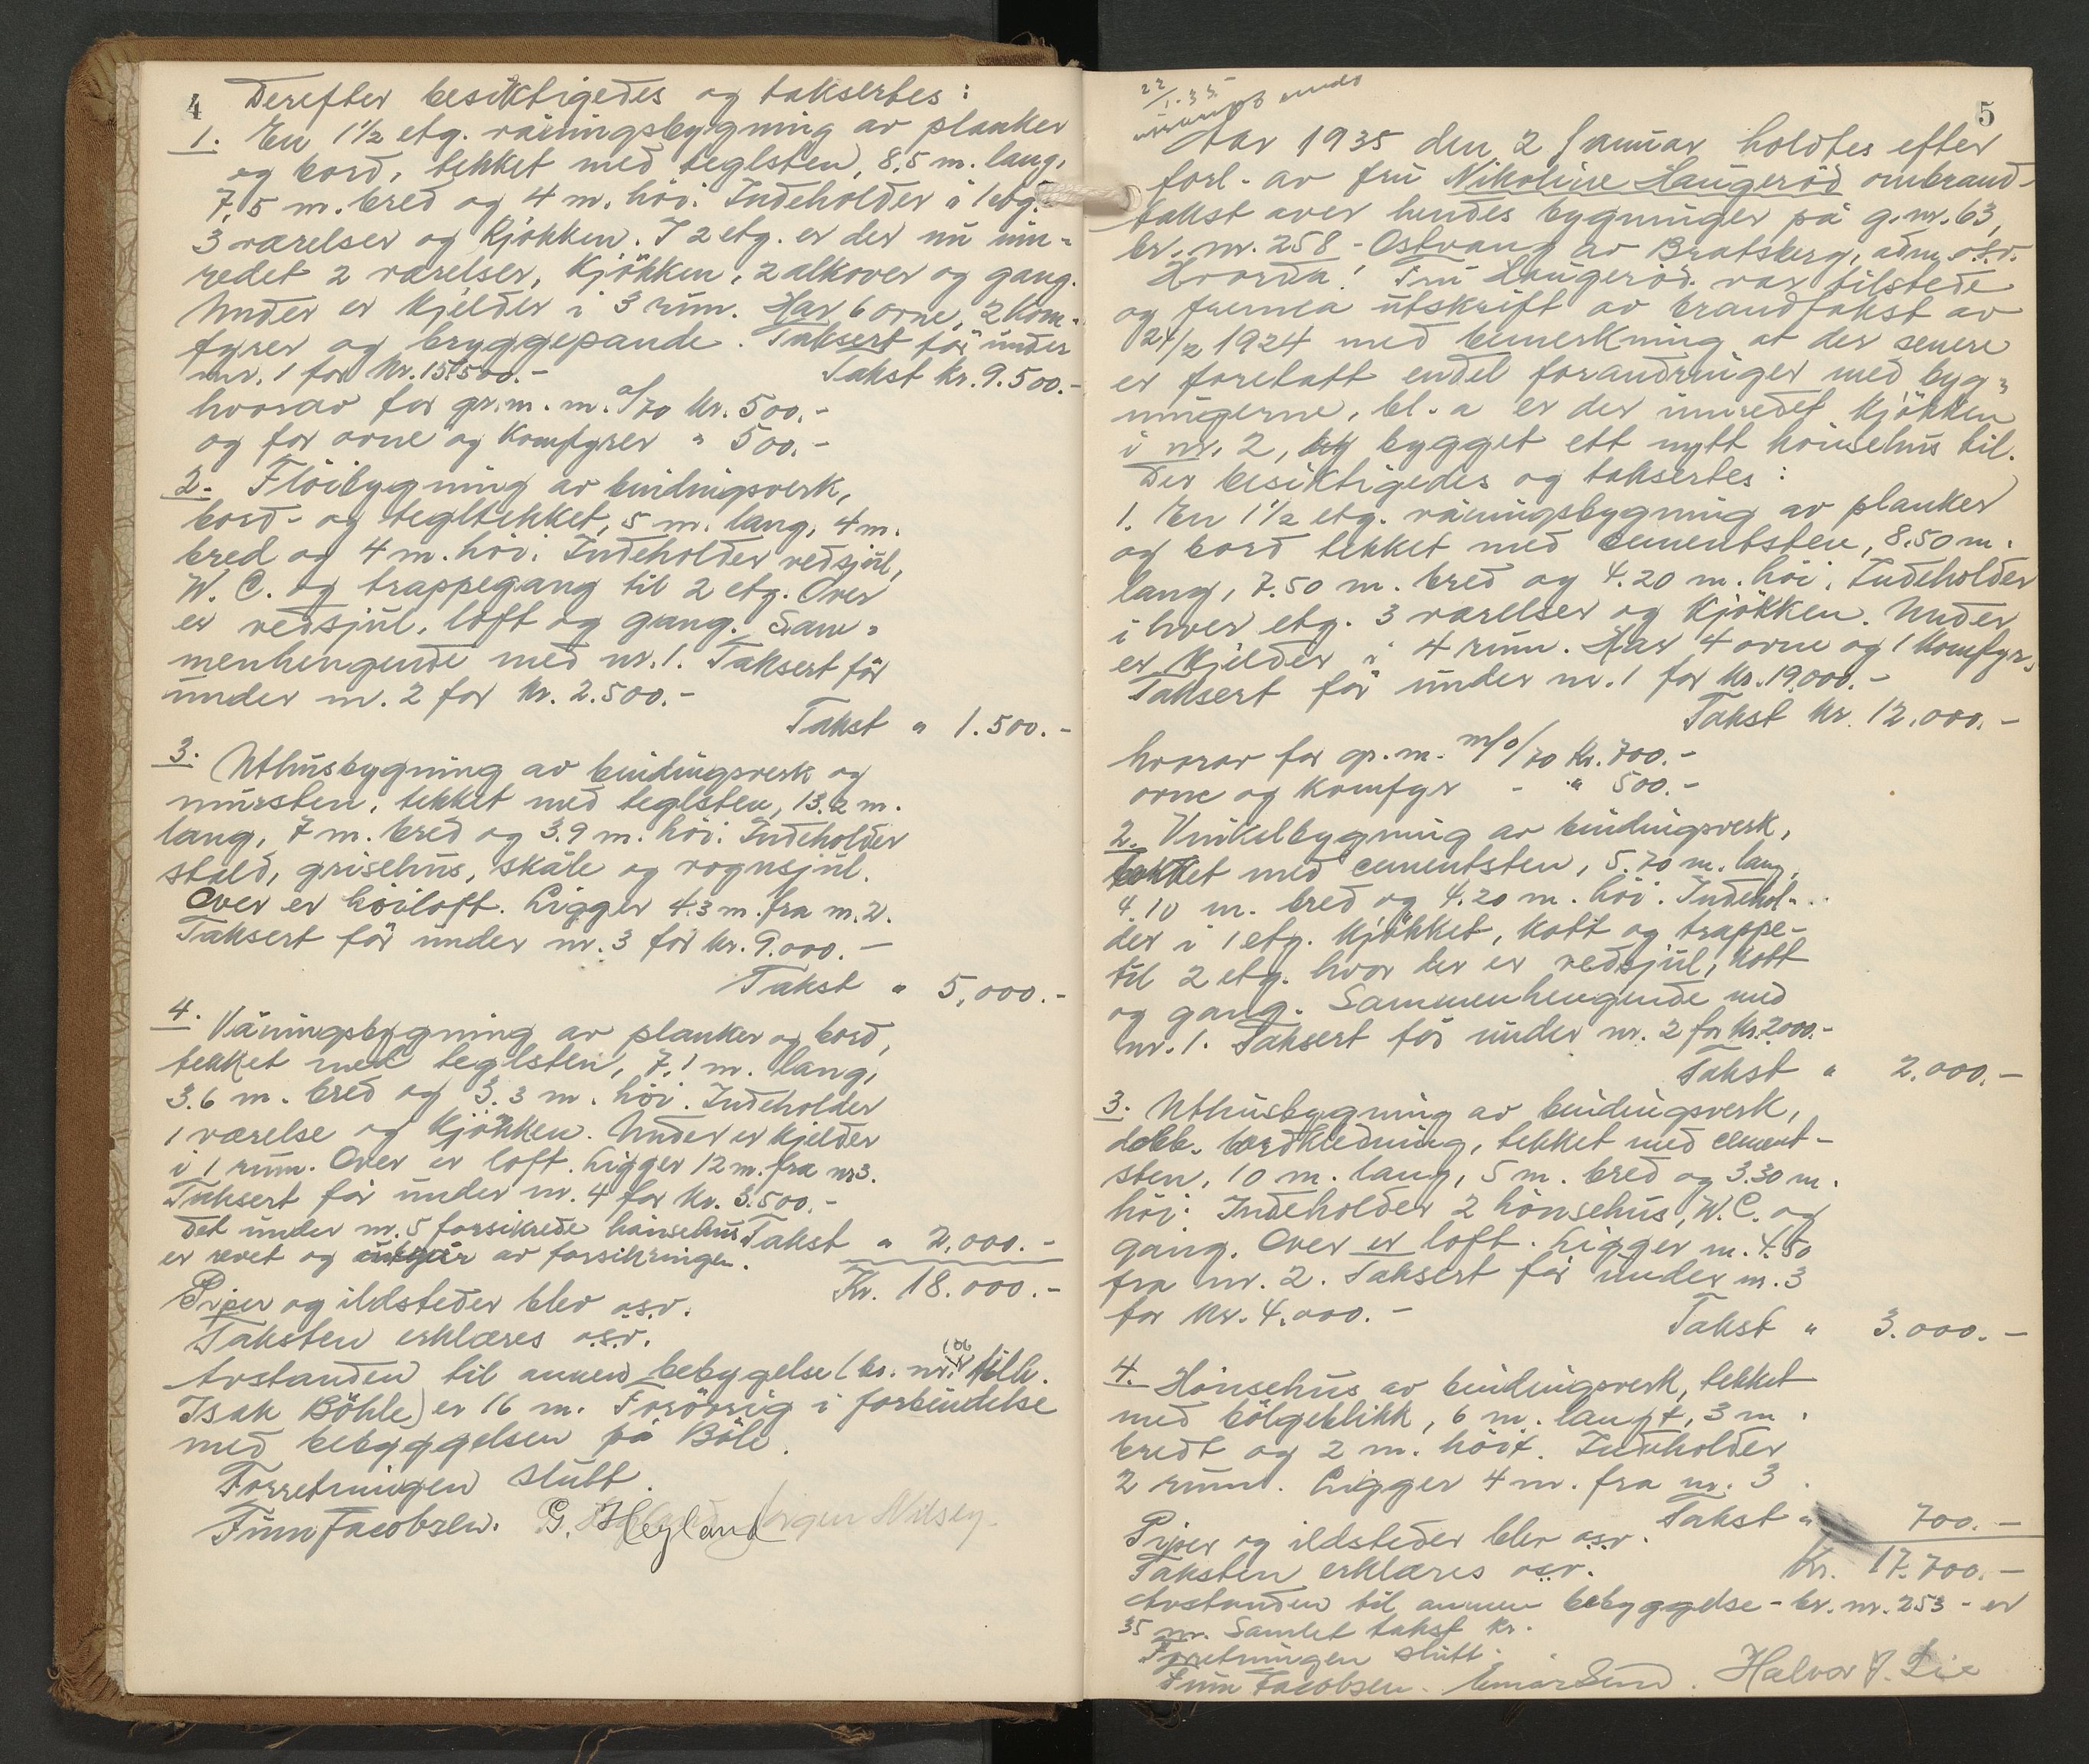 4
Derefter besiktigedes og taksertes:
1. En 1½ etg. våningsbygning av planker
og bord, tekket med teglsten, 8,5 m. lang,
7,5 m. bred og 4 m. höi. Indeholder i 1 etg.
3 værelser og kjökken. I 2 etg. er der nu inn-
redet 2 værelser, kjökken, 2 alkover og gang.
Under er kjelder i 3 rum. Har 6 ovne, 2 kom-
fyrer og bryggepande. Taksert för under
nr. 1 for kr. 15.500.-
Takst kr. 9.500.-
hvorav for gr.m. m. a/70 kr. 500.-
og for ovne og komfyrer " 500.-
2. Flöibygning av bindingsverk,
bord- og tegltekket, 5 m. lang, 4 m.
bred og 4 m. höi. Indeholder vedsjul,
W. C. og trappegang til 2 etg. Over
er vedsjul, loft og gang. Sam-
menhengende med nr. 1. Taksert för
under nr. 2 for kr. 2.500.-
Takst " 1.500.-
3. Uthusbygning av bindingsverk og
mursten, tekket med teglsten, 13.2 m.
lang, 7 m. bred og 3.9 m. höi. Indeholder
stald, grisehus, skåle og vognsjul.
Over er höiloft. Ligger 4.3 m. fra nr. 2.
Taksert för under nr. 3 for kr. 9.000.-
Takst " 5.000.-
4. Våningsbygning av planker og bord,
tekket med teglsten, 7.1 m. lang,
3.6 m. bred og 3.3 m. höi. Indeholder
1 værelse og kjökken. Under er kjelder
i 1 rum. Over er loft. Ligger 12 m. fra nr 3.
Taksert för under nr. 4 for kr. 3.500.-
Det under nr. 5 forsikrede hönsehus
Takst " 2.000.-
er revet og utgår av forsikringen.
Kr. 18.000.-
Piper og ildsteder blev osv.
Taksten erklæres osv.
Avstanden til annen bebygelse (br. nr. 106 tilh.
Isak Böhle) er 16 m. Forövrig i forbindelse
med bebyggelsen på Böle.
Forretningen slutt.
Finn Jacobsen. G. Heyland Jörgen Nilsen.
22/1.35
5
Aar 1935 den 2 Januar holdtes efter
forl. av fru Nikoline Haugeröd ombrand-
takst over hendes bygninger på g.nr. 63,
br. nr. 258 - Östvang av Bratsberg, adm. osv.
Hvorda! Fru Haugeröd var tilstede
og fremla utskrift av brandtakst av
24/2 1924 med bemerkning at der senere
er foretatt endel forandringer med byg-
ningerne, bl. a er der innredet kjökken
i nr. 2, bygget ett nytt hönsehus til.
Der besiktigedes og taksertes:
1. En 1½ etg. våningsbygning av planker
og bord tekket med cementsten, 8.50 m.
lang, 7.50 m. bred og 4.20 m. höi. Indeholder
i hver etg. 3 værelser og kjökken. Under
er kjelder i 4 rum. Har 4 ovne og 1 komfyr.
Taksert för under nr. 1 for kr. 19.000.-
Takst kr. 12.000.-
hvorav for gr.m. m/a/70 kr. 700.-
ovne og komfyr - " 500.-
2. Vinkelbygning av bindingsverk,
tekket med cementsten, 5.70 m. lang,
4.10 m. bred og 4.20 m. höi. Indehol-
der i 1 etg. kjökket, kott og trappe-
til 2 etg. hvor der er vedsjul, kott
og gang. Sammenhengende med
nr. 1. Taksert för under nr. 2 for kr. 2.000.-
Takst " 2.000.-
3. Uthusbygning av bindingsverk,
dobb. bordkledning, tekket med cement-
sten, 10 m. lang, 5 m. bred og 3.30 m.
höi. Indeholder 2 hönsehus, W. C. og
gang. Over er loft. Ligger m. 4.50
fra nr. 2. Taksert för under nr. 3
for kr. 4.000.-
Takst " 3.000.-
4. Hönsehus av bindingsverk, tekket
med bölgeblikk, 6 m. langt, 3 m.
bredt og 2 m. höit. Indeholder
2 rum. Ligger 4 m. fra nr. 3.
Takst " 700.-
Piper og ildsteder blev osv.
Kr. 17.700.-
Taksten erklæres osv.
Avstanden til annen bebyggelse - br. nr. 253 - er
35 m. Samlet takst kr.
Forretningen slutt.
Finn Jacobsen. Einar Lund. Halvor J. Lie